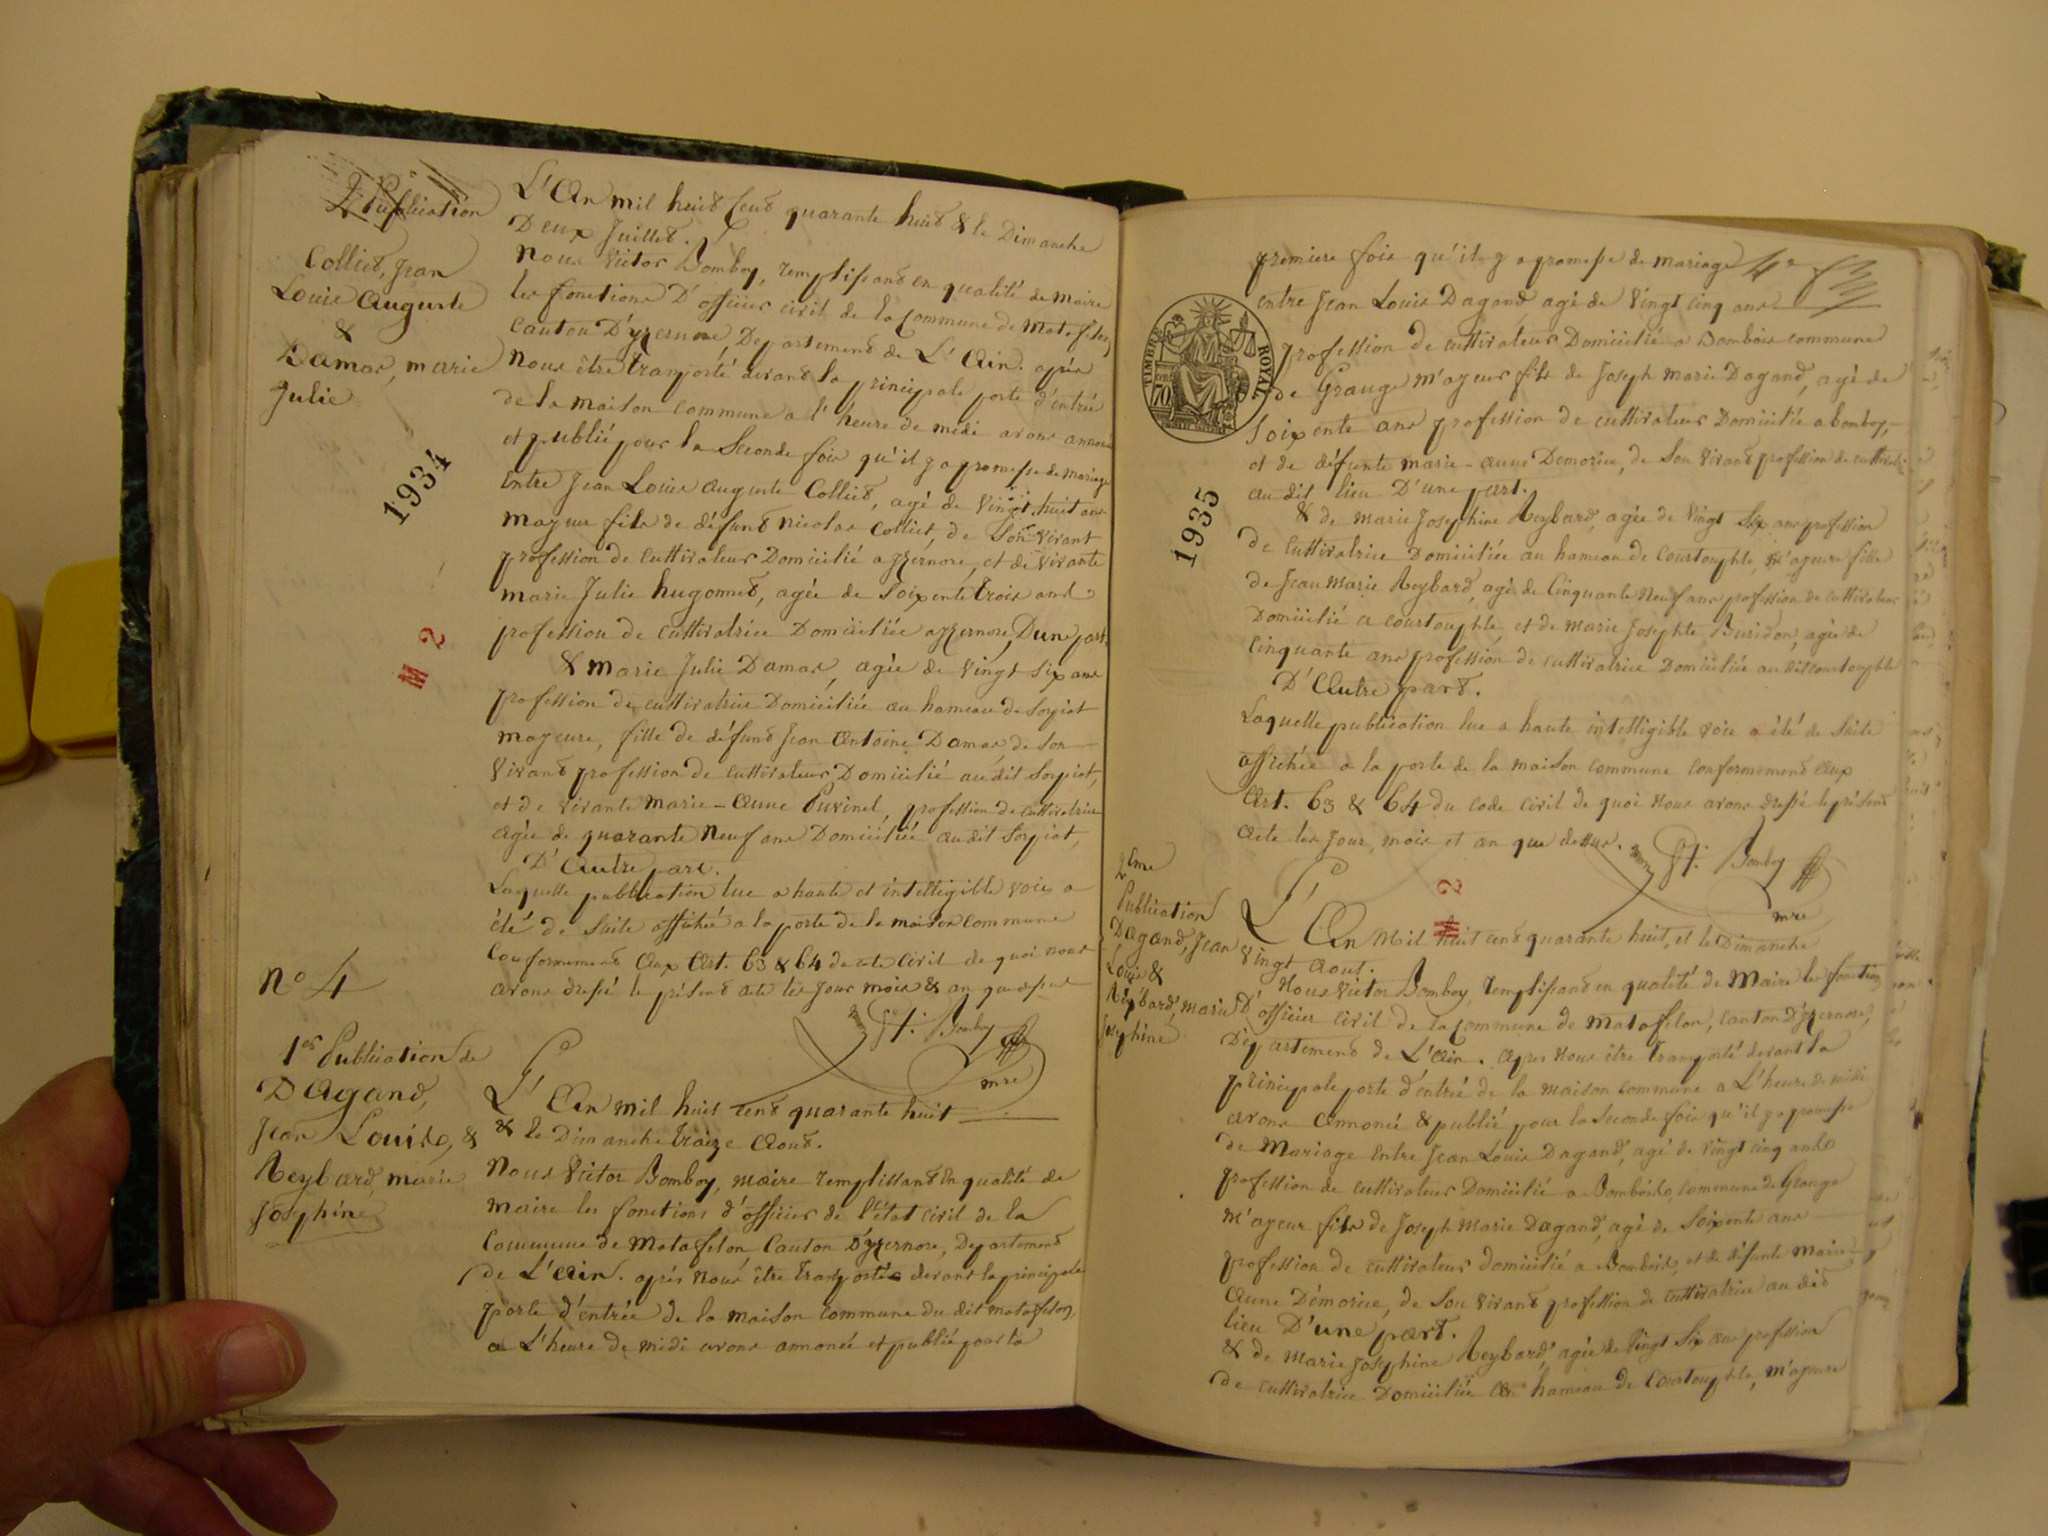 2e Publication
Colliet, Jean
Louis Auguste
&
Damas, marie
Julie
1934
M 2
L'An mil huit Cent quarante huit & le Dimanche
Deux Juillet.
Nous Victor Bomboy, remplissant en qualité de maire
les fonctions D'officier civil de la Commune de Matafelon
Canton D'yzernore, Departement de L'Ain. après
Nous être transporté devant la principale porte d'entrée
de la maison commune a l'heure de midi avons annoncé
et publié pour la Seconde fois qu'il y a promesse de mariage
Entre Jean Louis auguste Colliet, agé de Vingt huit ans
mageur fils de défunt nicolas Colliet, de Son Vivant
profession de Cultivateur Domicilié a yzernore, et de vivante
marie Julie hugonnet, agée de Soixente trois ans
profession de Cultivatrice Domiciliée a yzernore, D'une part.
& marie Julie Damas, agée de Vingt Six ans
profession de cultivatrice Domiciliée au hameau de Sorpiat
mageure, fille de défunt Jean Antoine Damas de son
Vivant profession de Cultivateur Domicilié audit Sorpiat,
et de vivante marie-Anne Puvinel, profession de Cultivatrice
agée de quarante Neuf ans Domiciliée audit Sorpiat,
D'Autre part.
Laquelle publication lue a haute et intelligible voix a
été de Suite affichée a la porte de la maison commune
Conformement Aux Art. 63 & 64 du code Civil de quoi nous
avons dressé le présent acte les Jour mois & an que dessus
Bomboy
mre
no 4
1er Publication de
DAgand,
Jean Louis, &
Reybard, marie
Josephine
L'An mil huit cent quarante huit
& le Dimanche traize Aout.
Nous Victor Bomboy, maire remplissant En qualité de
maire les fonctions d'officier de l'état civil de la
Commune de Matafelon, Canton D'yzernore, Departement
de L'Ain. après Nous être transporté devant la principale
porte d'entrée de la maison commune du dit matafelon,
a L'heure de midi avons annoncé et publié pour la
premiere fois qu'il y a promesse de mariage
entre Jean Louis Dagand, agé de Vingt cinq ans
profession de cultivateur Domicilié a Bombois commune
de Grange m'ageur fils de Joseph marie Dagand, agé de
Soixente ans profession de cultivateur Domicilié a bomboy,
et de défunte marie-anne Demorice, de Son Vivant profession de cultivatrice
au dit lieu D'une part.
& de marie Josephine Reybard, agée de Vingt Six ans profession
de cultivatrice Domiciliée au hameau de Courtouphle, m'ageure fille
de Jean Marie Reybard, agé de Cinquante Neuf ans profession de cultivateur
Domicilié a courtouphle, et de marie Josephte Buridon, agée de
Cinquante ans profession de cultivatrice Domiciliée au dit courtouphle
D'Autre part.
Laquelle publication lue a haute intelligible voix a été de Suite
affichée a la porte de la maison commune conformement Aux
Art. 63 & 64 du code civil de quoi Nous avons dressé le présent
Acte les Jour, mois et an que dessus.
Bomboy
mre
TIMBRE ROYAL
70
1935
M 2
2eme
Publication
Dagand, Jean
Louis &
Reybard, marie
Josephine
L'An Mil huit cent quarante huit, et le Dimanche
Vingt Aout.
Nous Victor Bomboy, remplissant en qualité de Maire les fonctions
D'officier Civil de la Commune de Matafelon, Canton D'yzernore,
Departement de L'Ain. apres Nous être transporté devant la
principale porte d'entrée de la maison commune a L'heure de midi
avons Annoncé & publié pour la Seconde fois qu'il y a promesse
de Mariage Entre Jean Louis Dagand, agé de vingt cinq ans
profession de cultivateur Domicilié a Bombois, commune de Grange
m'ageur fils de Joseph Marie Dagand, agé de Soixente ans
profession de cultivateur domicilié a Bombois, et de défunte marie
Anne Démorice, de Son Vivant profession de cultivatrice au dit
lieu D'une part.
& de marie Josephine Reybard, agée de Vingt Six ans profession
de cultivatrice Domiciliée au hameau de Courtouphle, m'ageure